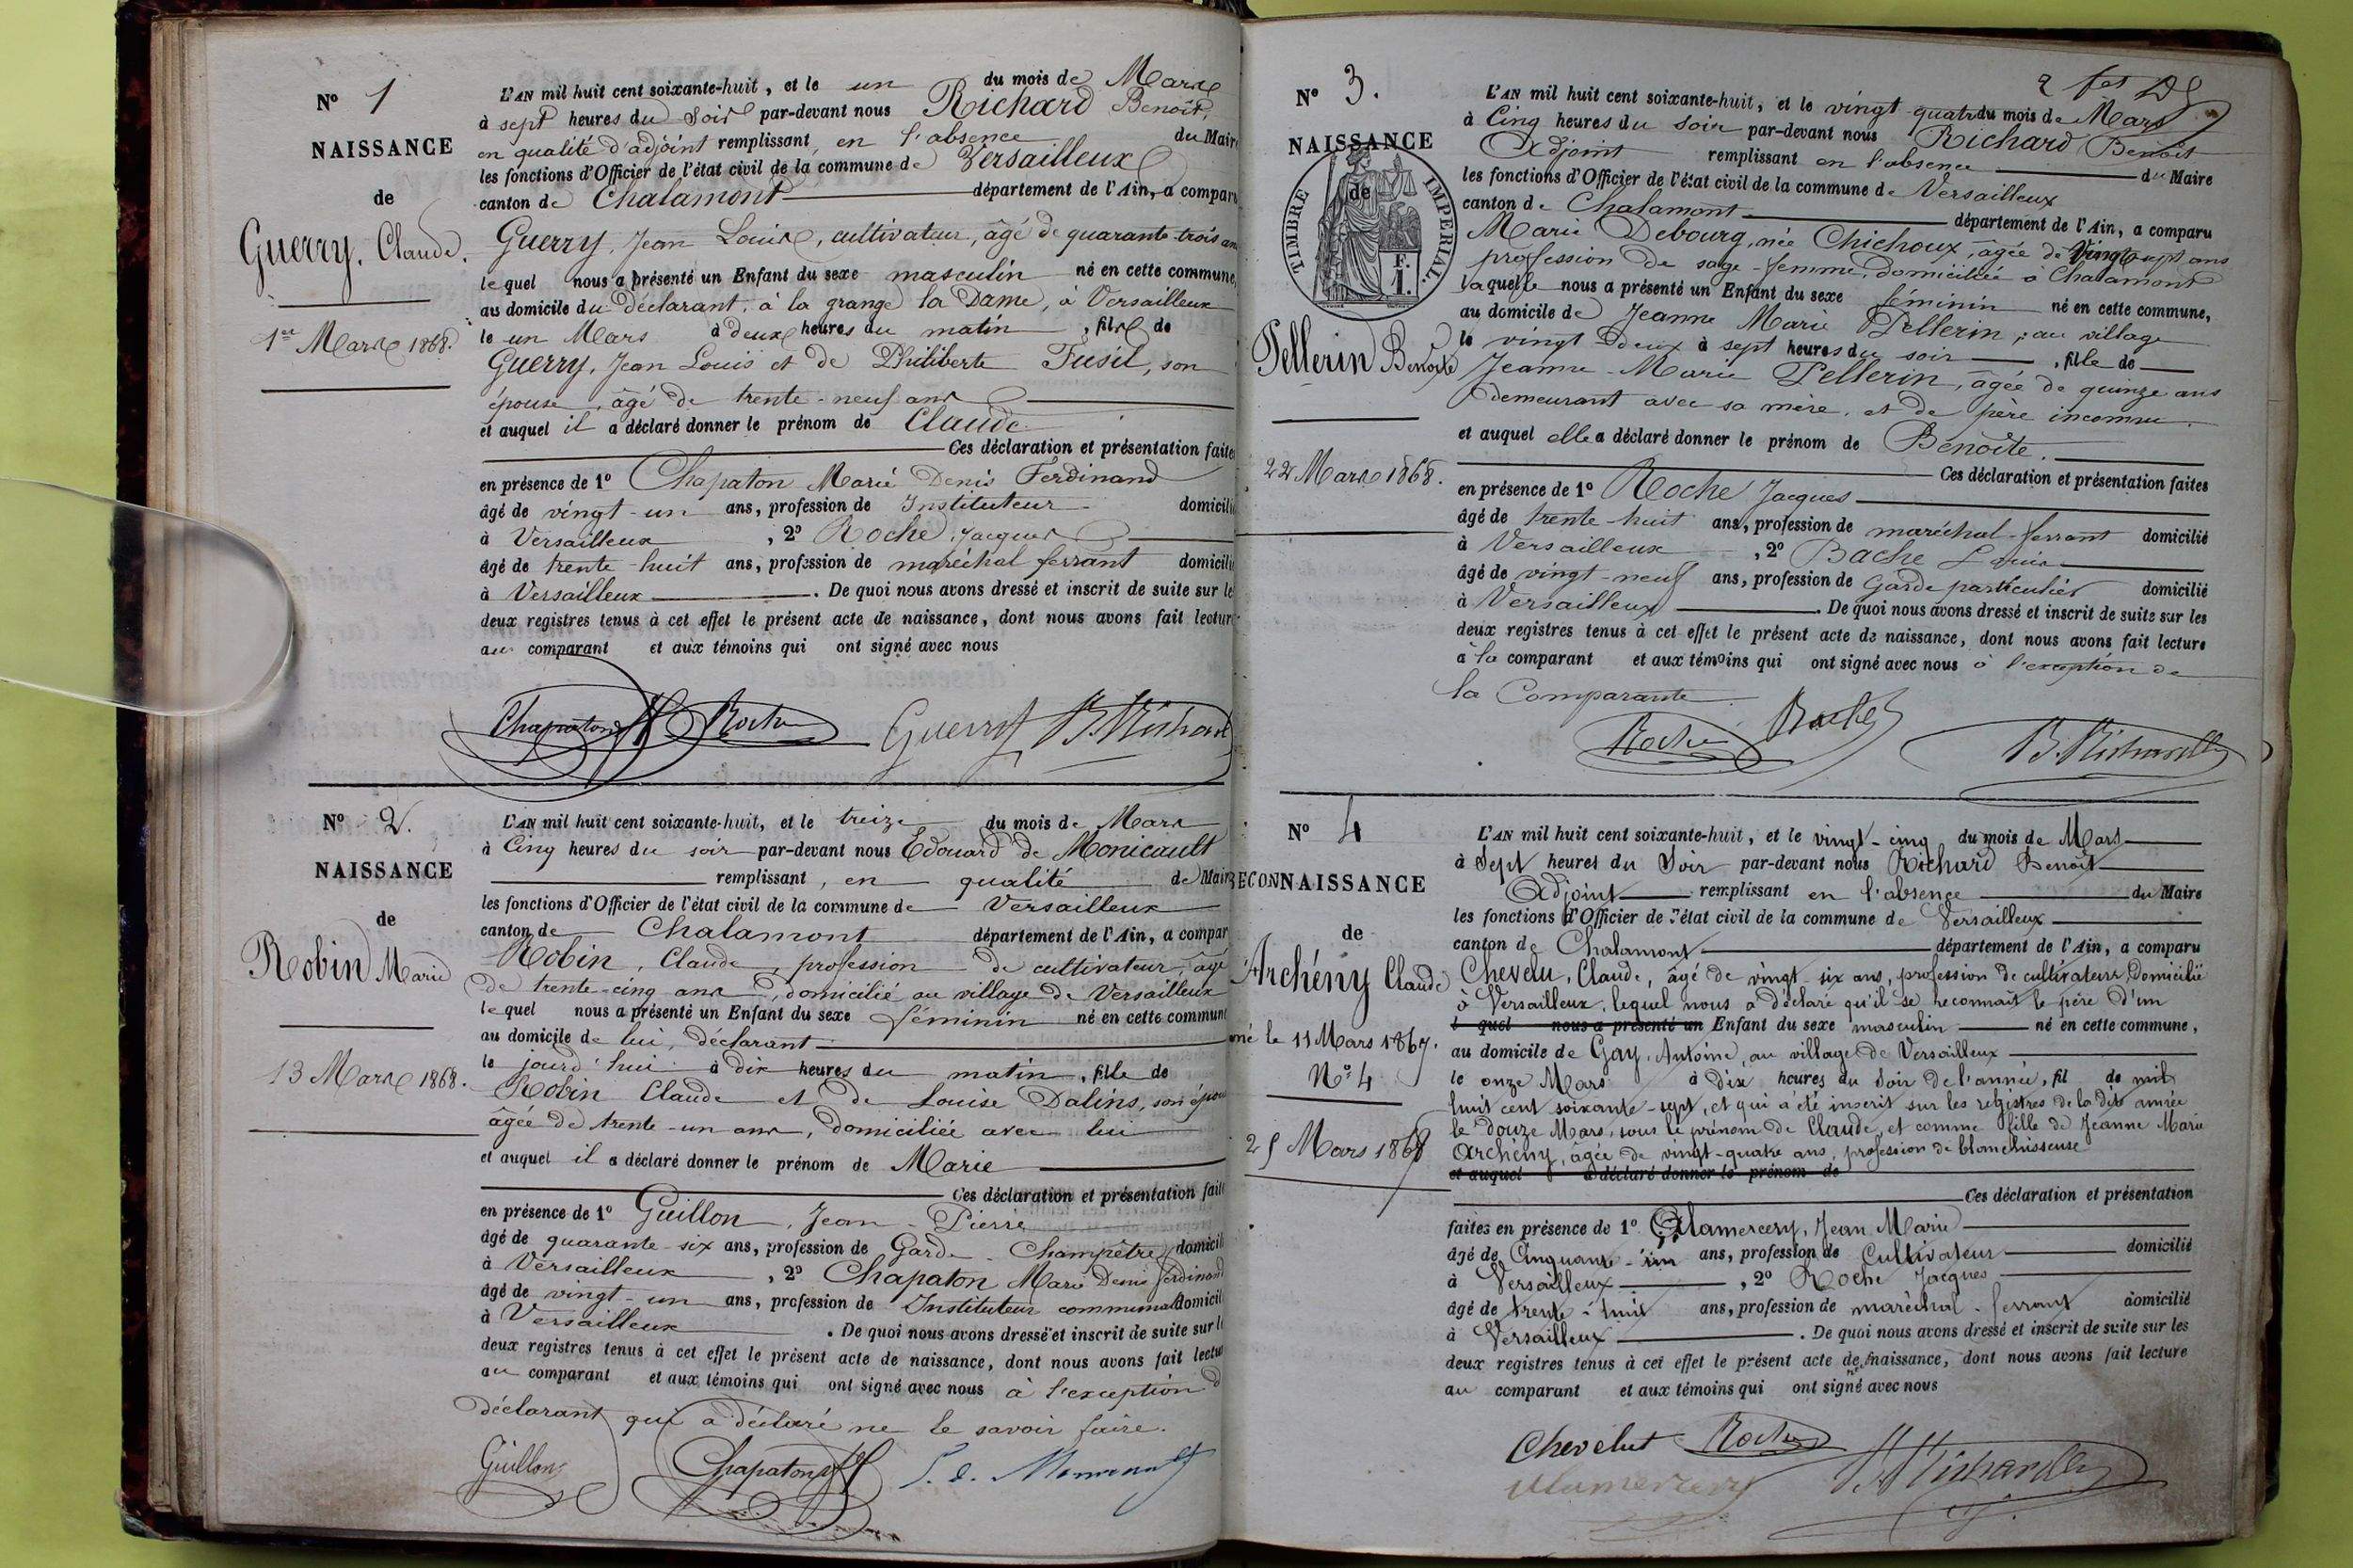 N° 1
NAISSANCE
de
Guerry, Claude.
1er Mars 1868.
L'AN mil huit cent soixante-huit, et le un du mois de Mars
à sept heures du Soir par-devant nous Richard Benoît,
en qualité d'adjoint remplissant, en l'absence du Maire
les fonctions d'Officier de l'état civil de la commune de Versailleux
canton de Chalamont département de l'Ain, a comparu
Guerry, Jean Louis, cultivateur, âgé de quarante-trois ans
lequel nous a présenté un Enfant du sexe masculin né en cette commune,
au domicile du déclarant, à la grange la Dame, à Versailleux
le un Mars à deux heures du matin, fils de
Guerry, Jean Louis et de Philiberte Fusil, son
épouse, âgé de trente-neuf ans
et auquel il a déclaré donner le prénom de Claude
Ces déclaration et présentation faites
en présence de 1° Chapaton Marie Denis Ferdinand
âgé de vingt-un ans, profession de Instituteur domicilié
à Versailleux, 2° Roche, Jacques
âgé de trente-huit ans, profession de maréchal ferrant domicilié
à Versailleux. De quoi nous avons dressé et inscrit de suite sur le
deux registres tenus à cet effet le présent acte de naissance, dont nous avons fait lecture
au comparant et aux témoins qui ont signé avec nous
Chapaton Roche Guerry B. Richard
N° 2.
NAISSANCE
de
Robin Marie
13 Mars 1868.
L'AN mil huit cent soixante-huit, et le treize du mois de Mars
à Cinq heures du soir par-devant nous Edouard de Monicault
remplissant, en qualité de Maire
les fonctions d'Officier de l'état civil de la commune de Versailleux
canton de Chalamont département de l'Ain, a compar
Robin, Claude, profession de cultivateur, âgé
de trente-cinq ans, domicilié au village de Versailleux
lequel nous a présenté un Enfant du sexe féminin né en cette commun
au domicile de lui, déclarant
le jourd'hui à dix heures du matin, fille de
Robin Claude et de Louise Dalins, son épouse
âgée de trente-un ans, domiciliée avec lui
et auquel il a déclaré donner le prénom de Marie
Ces déclaration et présentation fait
en présence de 1° Guillon, Jean-Pierre
âgé de quarante-six ans, profession de Garde-Champêtre domicil
à Versailleux, 2° Chapaton Marie Denis Ferdinand
âgé de vingt-un ans, profession de Instituteur communal domicil
à Versailleux. De quoi nous avons dressé et inscrit de suite sur l
deux registres tenus à cet effet le présent acte de naissance, dont nous avons fait lectu
au comparant et aux témoins qui ont signé avec nous à l'exception d
déclarant qui a déclaré ne le savoir faire.
Guillon Chapaton
N° 3.
NAISSANCE
de
TIMBRE IMPÉRIAL.
F.
1.
Pellerin Benoîte
22 Mars 1868.
L'AN mil huit cent soixante-huit, et le vingt-quatre du mois de Mars
à Cinq heures du Soir par-devant nous Richard Benoît
Adjoint remplissant en l'absence du Maire
les fonctions d'Officier de l'état civil de la commune de Versailleux
canton de Chalamont département de l'Ain, a comparu
Marie Debourg, née Chichoux, âgée de ans
profession de sage-femme, domiciliée à Chalamont
laquelle nous a présenté un Enfant du sexe féminin né en cette commune,
au domicile de Jeanne Marie Pellerin, au village
le vingt deux à sept heures du soir, fille de
Jeanne-Marie Pellerin, âgée de quinze ans
demeurant avec sa mère, et de père inconnu.
et auquel elle a déclaré donner le prénom de Benoîte.
Ces déclaration et présentation faites
en présence de 1° Roche Jacques
âgé de trente-huit ans, profession de maréchal-ferrant domicilié
à Versailleux, 2° Bache Louis
âgé de vingt-neuf ans, profession de Garde particulier domicilié
à Versailleux. De quoi nous avons dressé et inscrit de suite sur les
deux registres tenus à cet effet le présent acte de naissance, dont nous avons fait lecture
à la comparant et aux témoins qui ont signé avec nous à l'exception de
la Comparante.
Roche Bache B. Richard
N° 4
RECONNAISSANCE
de
Archény Claude
né le 11 Mars 1867.
N° 4
25 Mars 1868
L'AN mil huit cent soixante-huit, et le vingt-cinq du mois de Mars
à Sept heures du Soir par-devant nous Richard Benoît
Adjoint remplissant en l'absence du Maire
les fonctions d'Officier de l'état civil de la commune de Versailleux
canton de Chalamont département de l'Ain, a comparu
Chevelu, Claude, âgé de vingt-six ans, profession de cultivateur, Domicilié
à Versailleux, lequel nous a déclaré qu'il se reconnaît le père d'un
l quel nous a présenté un Enfant du sexe masculin né en cette commune,
au domicile de Gay, Antoine, au village de Versailleux
le onze Mars à dix heures du Soir de l'année, fil de mil
huit cent soixante-sept, et qui a été inscrit sur les registres de la dite année
le douze Mars, sous le prénom de Claude, et comme fille de Jeanne Marie
Archény, âgée de vingt-quatre ans, profession de blanchisseuse
et auquel a déclaré donner le prénom de
Ces déclaration et présentation
faites en présence de 1° Alamercery, Jean Marie
âgé de Cinquante-un ans, profession de Cultivateur domicilié
à Versailleux, 2° Roche Jacques
âgé de trente-huit ans, profession de maréchal-ferrant domicilié
à Versailleux. De quoi nous avons dressé et inscrit de suite sur les
deux registres tenus à cet effet le présent acte de naissance, dont nous avons fait lecture
au comparant et aux témoins qui ont signé avec nous
Chevelut Roche
Alamercery B. Richard